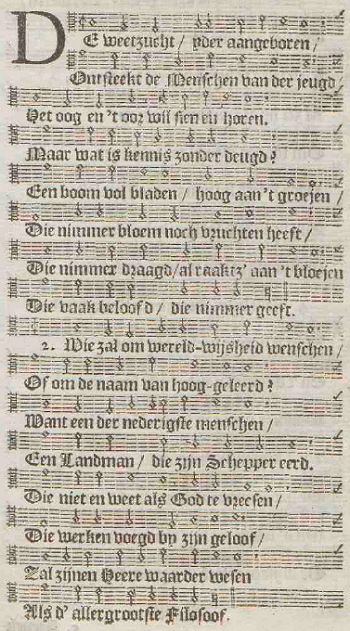 DE weetzucht / yder aangeboren /
Ontsteekt de Menschen van der jeugd /
Het oog en 't oor wil sien en horen.
Maar wat is kennis zonder deugd?
Een boom vol bladen / hoog aan 't groejen /
Die nimmer bloem noch vruchten heeft /
Die nimmer draagd / al raaktz' aan 't bloejen
Die vaak beloofd / die nimmer geeft.
2. Wie zal om wereld-wijsheid wenschen /
Of om de naam van hoog-geleerd?
Want een der nederigste menschen /
Een Landman / die zijn Schepper eerd.
Die niet en weet als God te vreesen /
Die werken voegd by zijn geloof /
Zal zijnen Heere waarder wesen
Als d' allergrootste Filosoof.